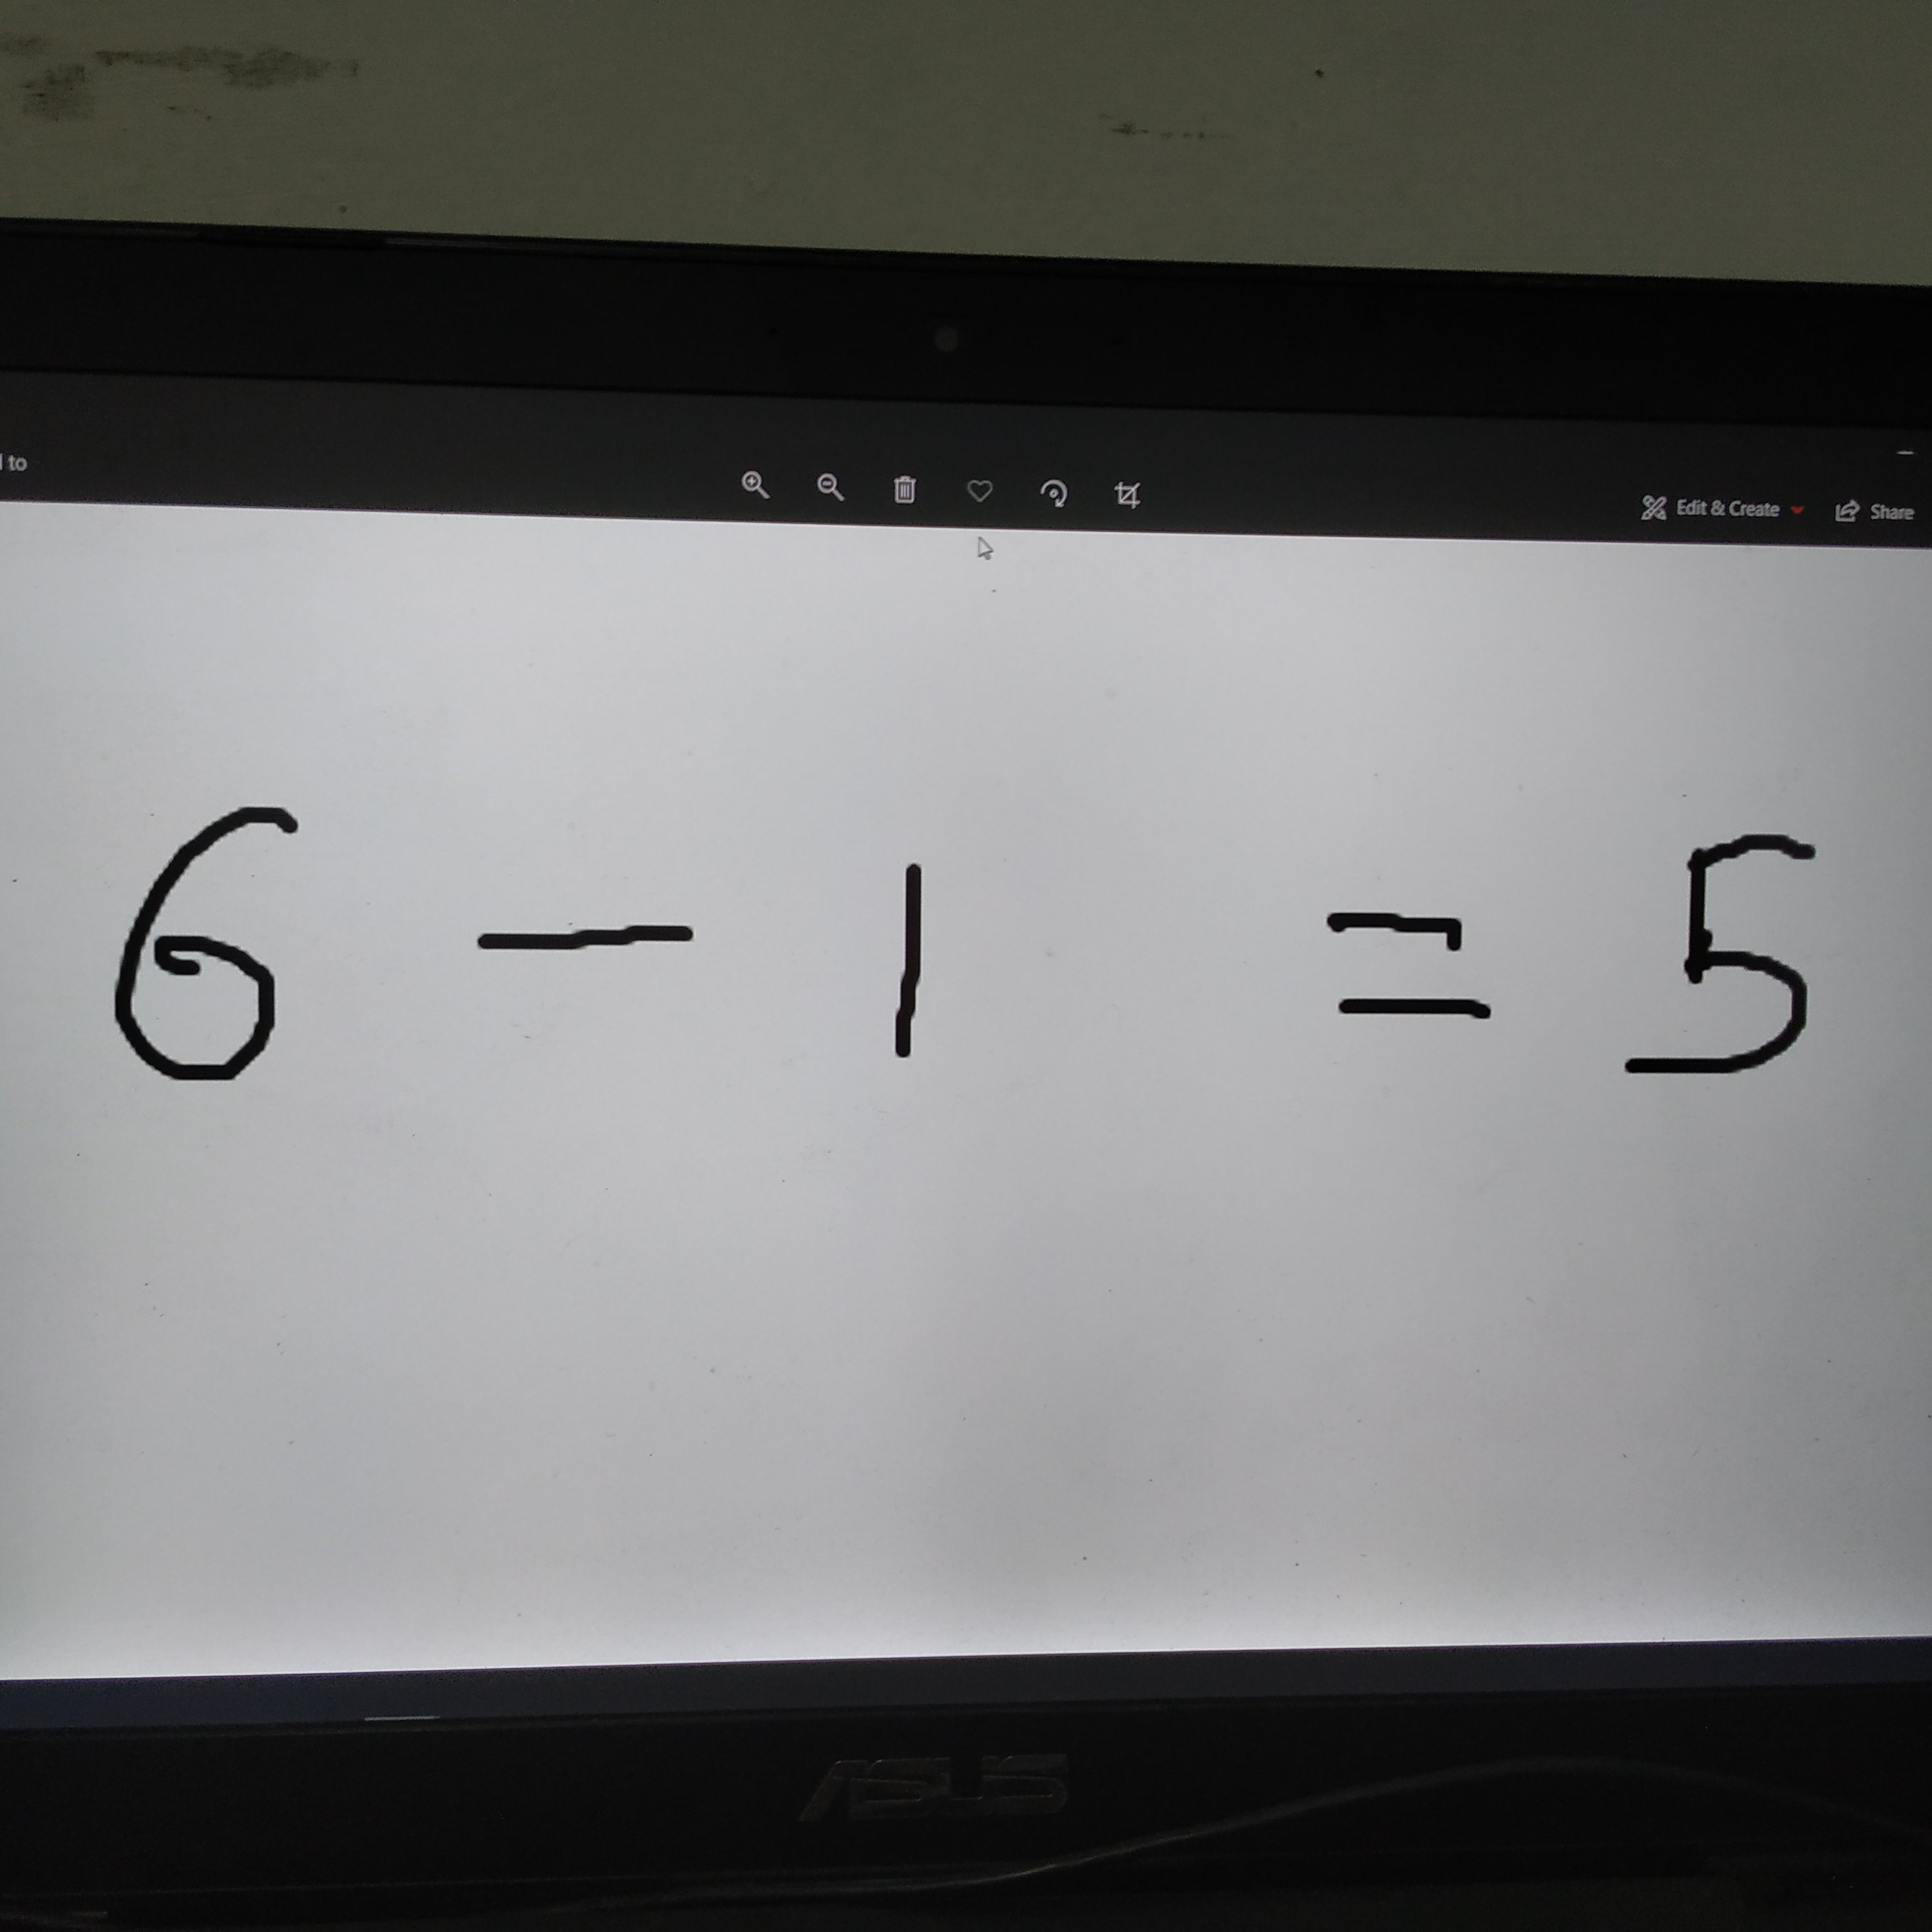 to
Edit & Create
Share
6 - 1 = 5
ASUS